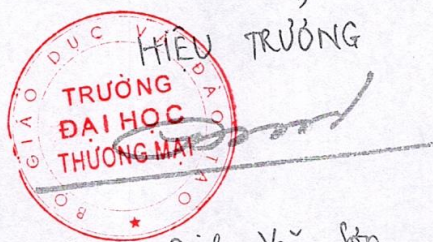 HIỆU TRƯỞNG
BỘ GIÁO DỤC VÀ ĐÀO TẠO
TRƯỜNG
ĐẠI HỌC
THƯƠNG MẠI
Văn Sơn